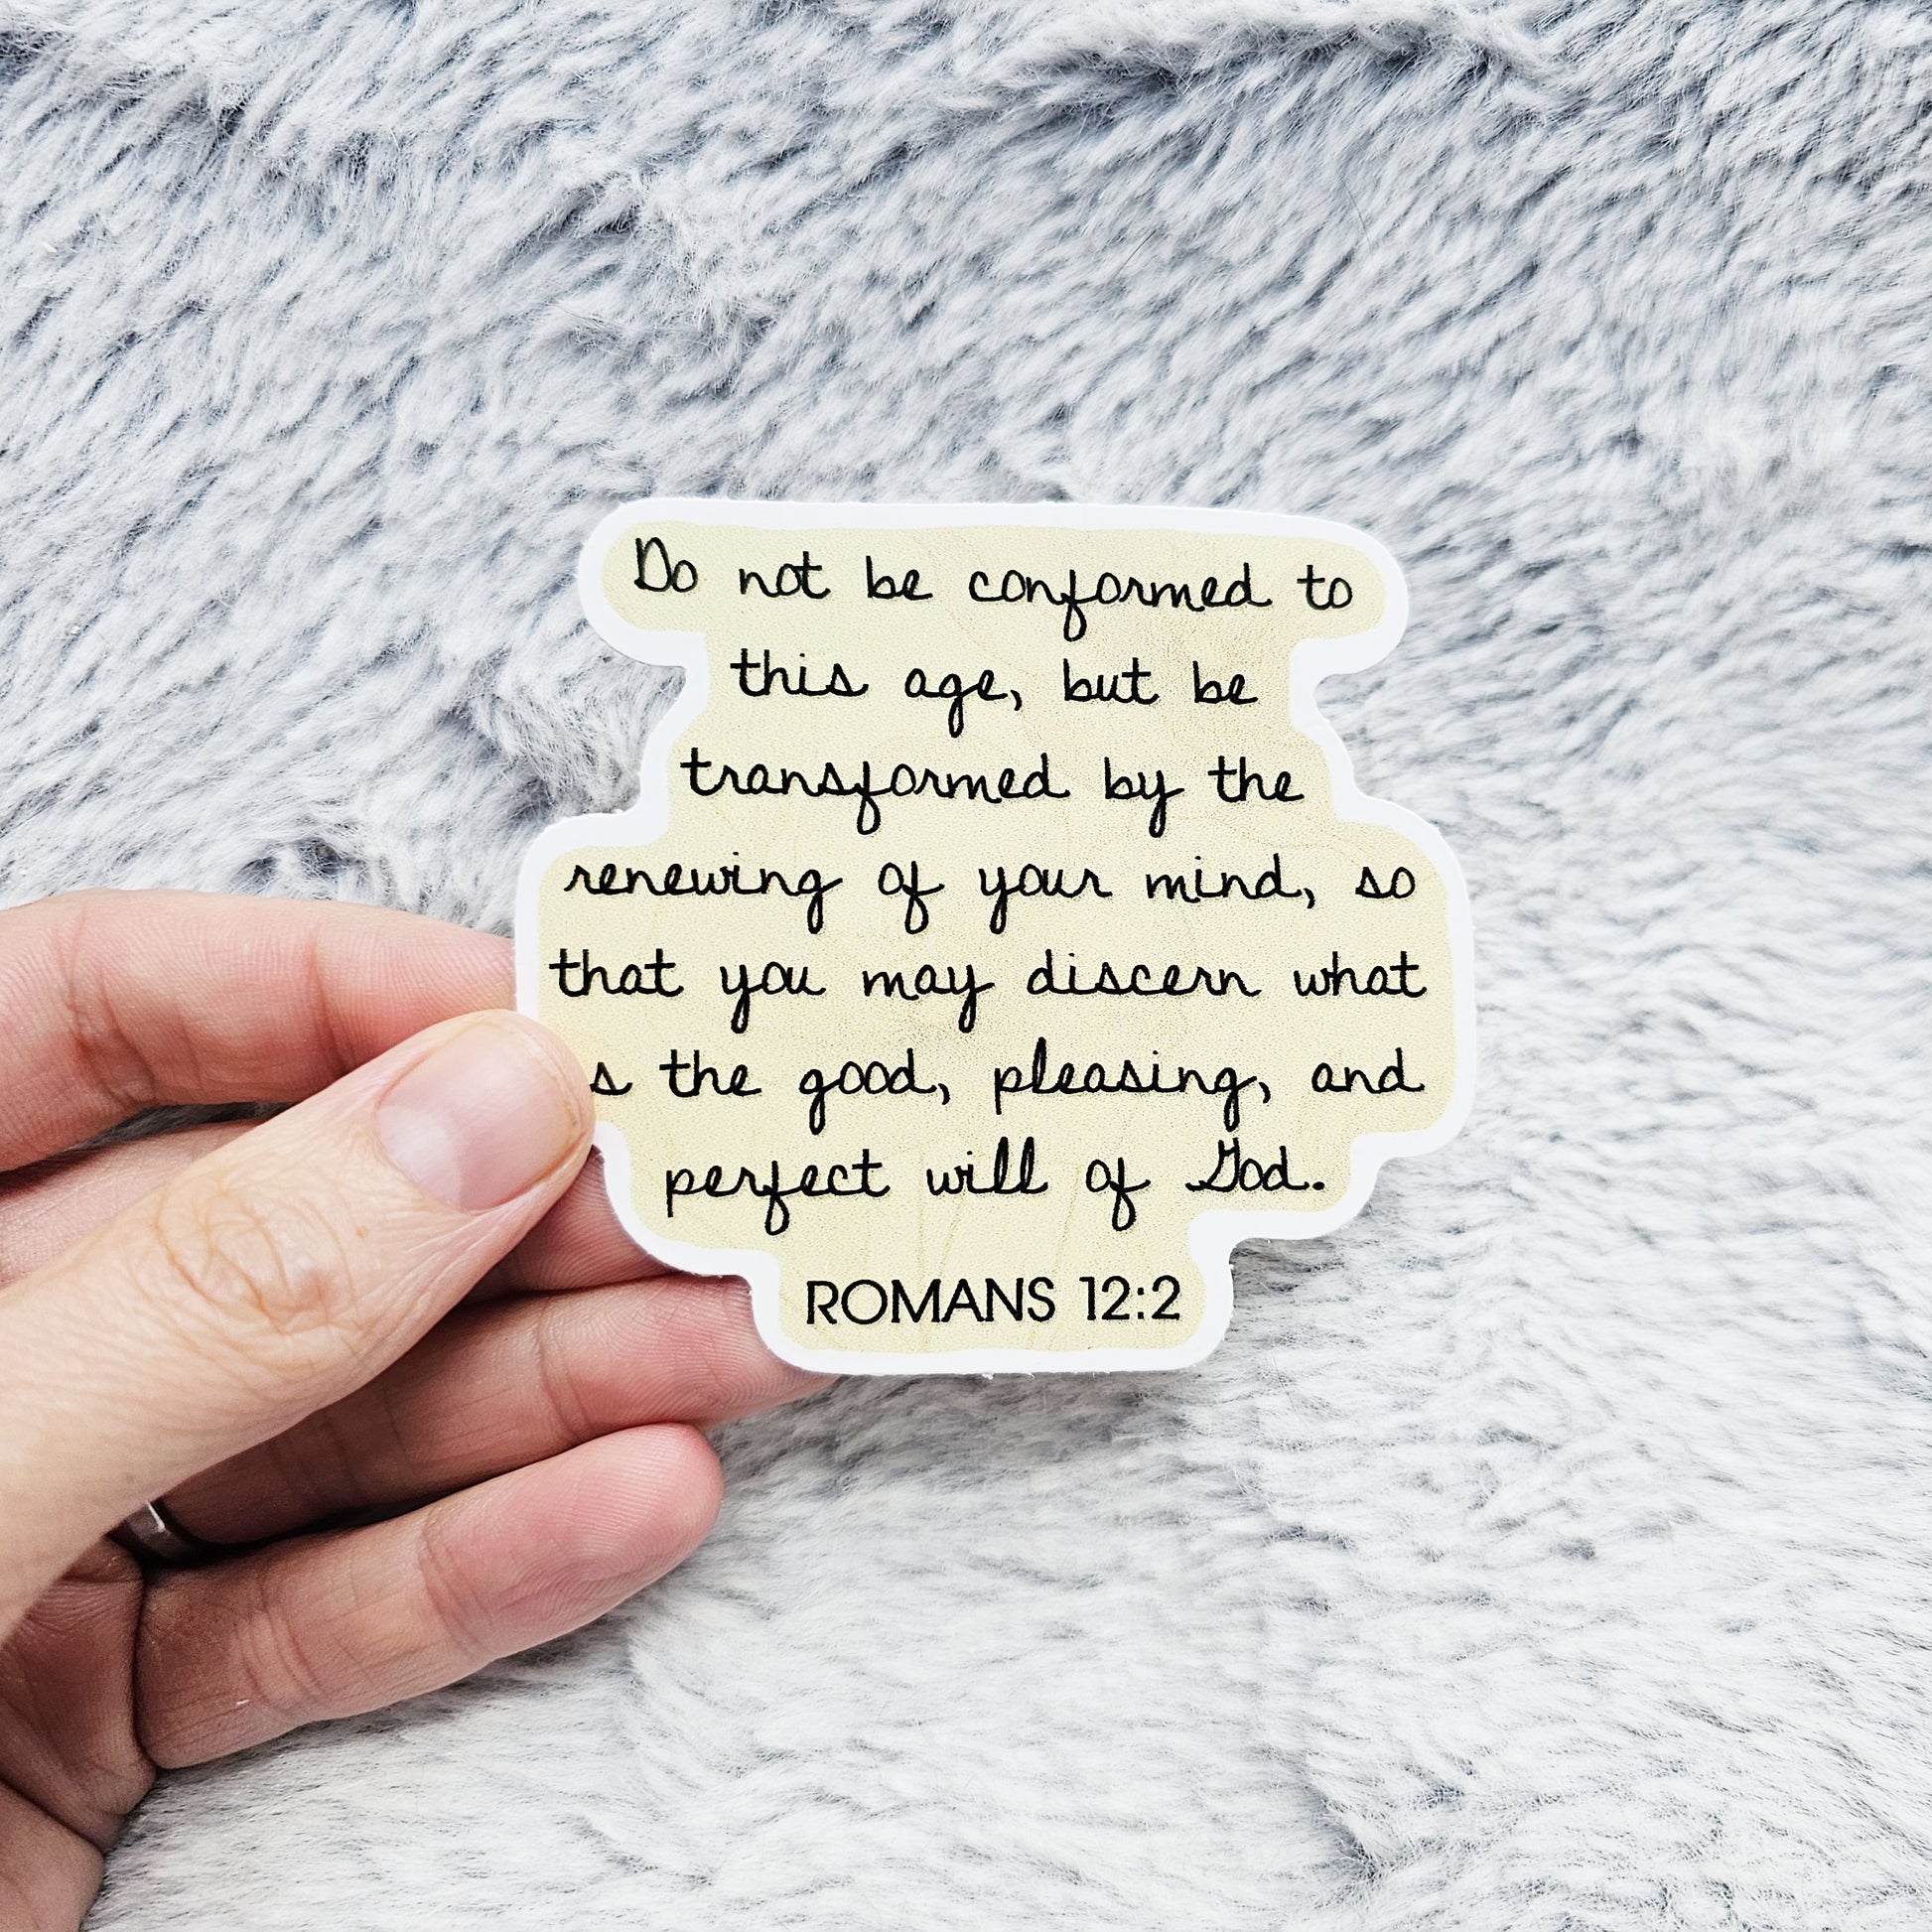 Do not be conformed to
this age, but be
transformed by the
renewing of your mind, so
that you may discern what
s the good, pleasing, and
perfect will of God.
ROMANS 12:2